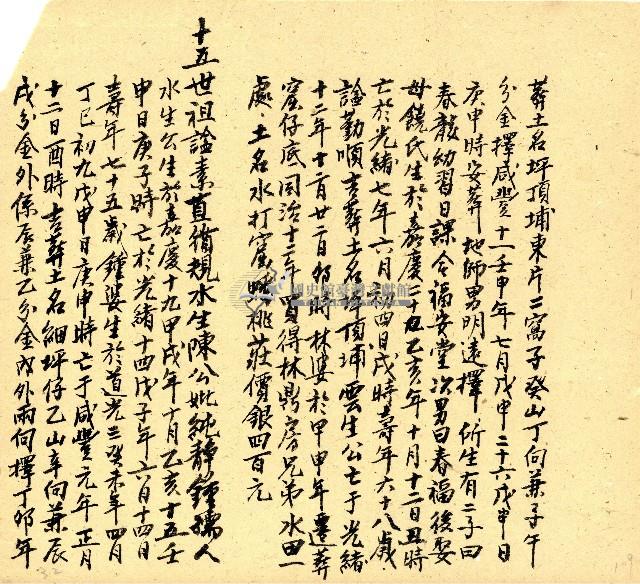 葬土名坪頂埔東片二窩子癸山丁向兼子午
分金擇咸豐十一壬申年七月戊申二十六戊申日
庚申時安葬地師男明遠擇 所生有二子曰
春殽幼習日課合福安堂次男曰春福後娶
母饒氏生於嘉慶十九乙亥年十月十二日丑時
亡於光緒七年六月初四日戌時壽年六十八歲
諡勤順吉葬土名坪頂埔雲生公亡于光緒
十二年十二月廿二日卯時林婆於甲申年遷葬
窩仔底同治十三年買得林鼎房兄弟水田一
處土名水打窩 桃莊價銀四百元
十五世祖諡素直脩親水生陳公妣純靜鍾孺人
水生公生於嘉慶十九甲戌年十月乙亥十五壬
申日庚子時亡於光緒十四戊子年六月十四日
壽年七十五歲鍾婆生於道光三癸未年四月
丁巳初九戊申日庚申時亡于咸豐元年正月
十二日酉時吉葬土名細坪仔乙山辛向兼辰
戌分金外係辰兼乙分金內外兩向擇丁卯年
國史館臺灣文獻館